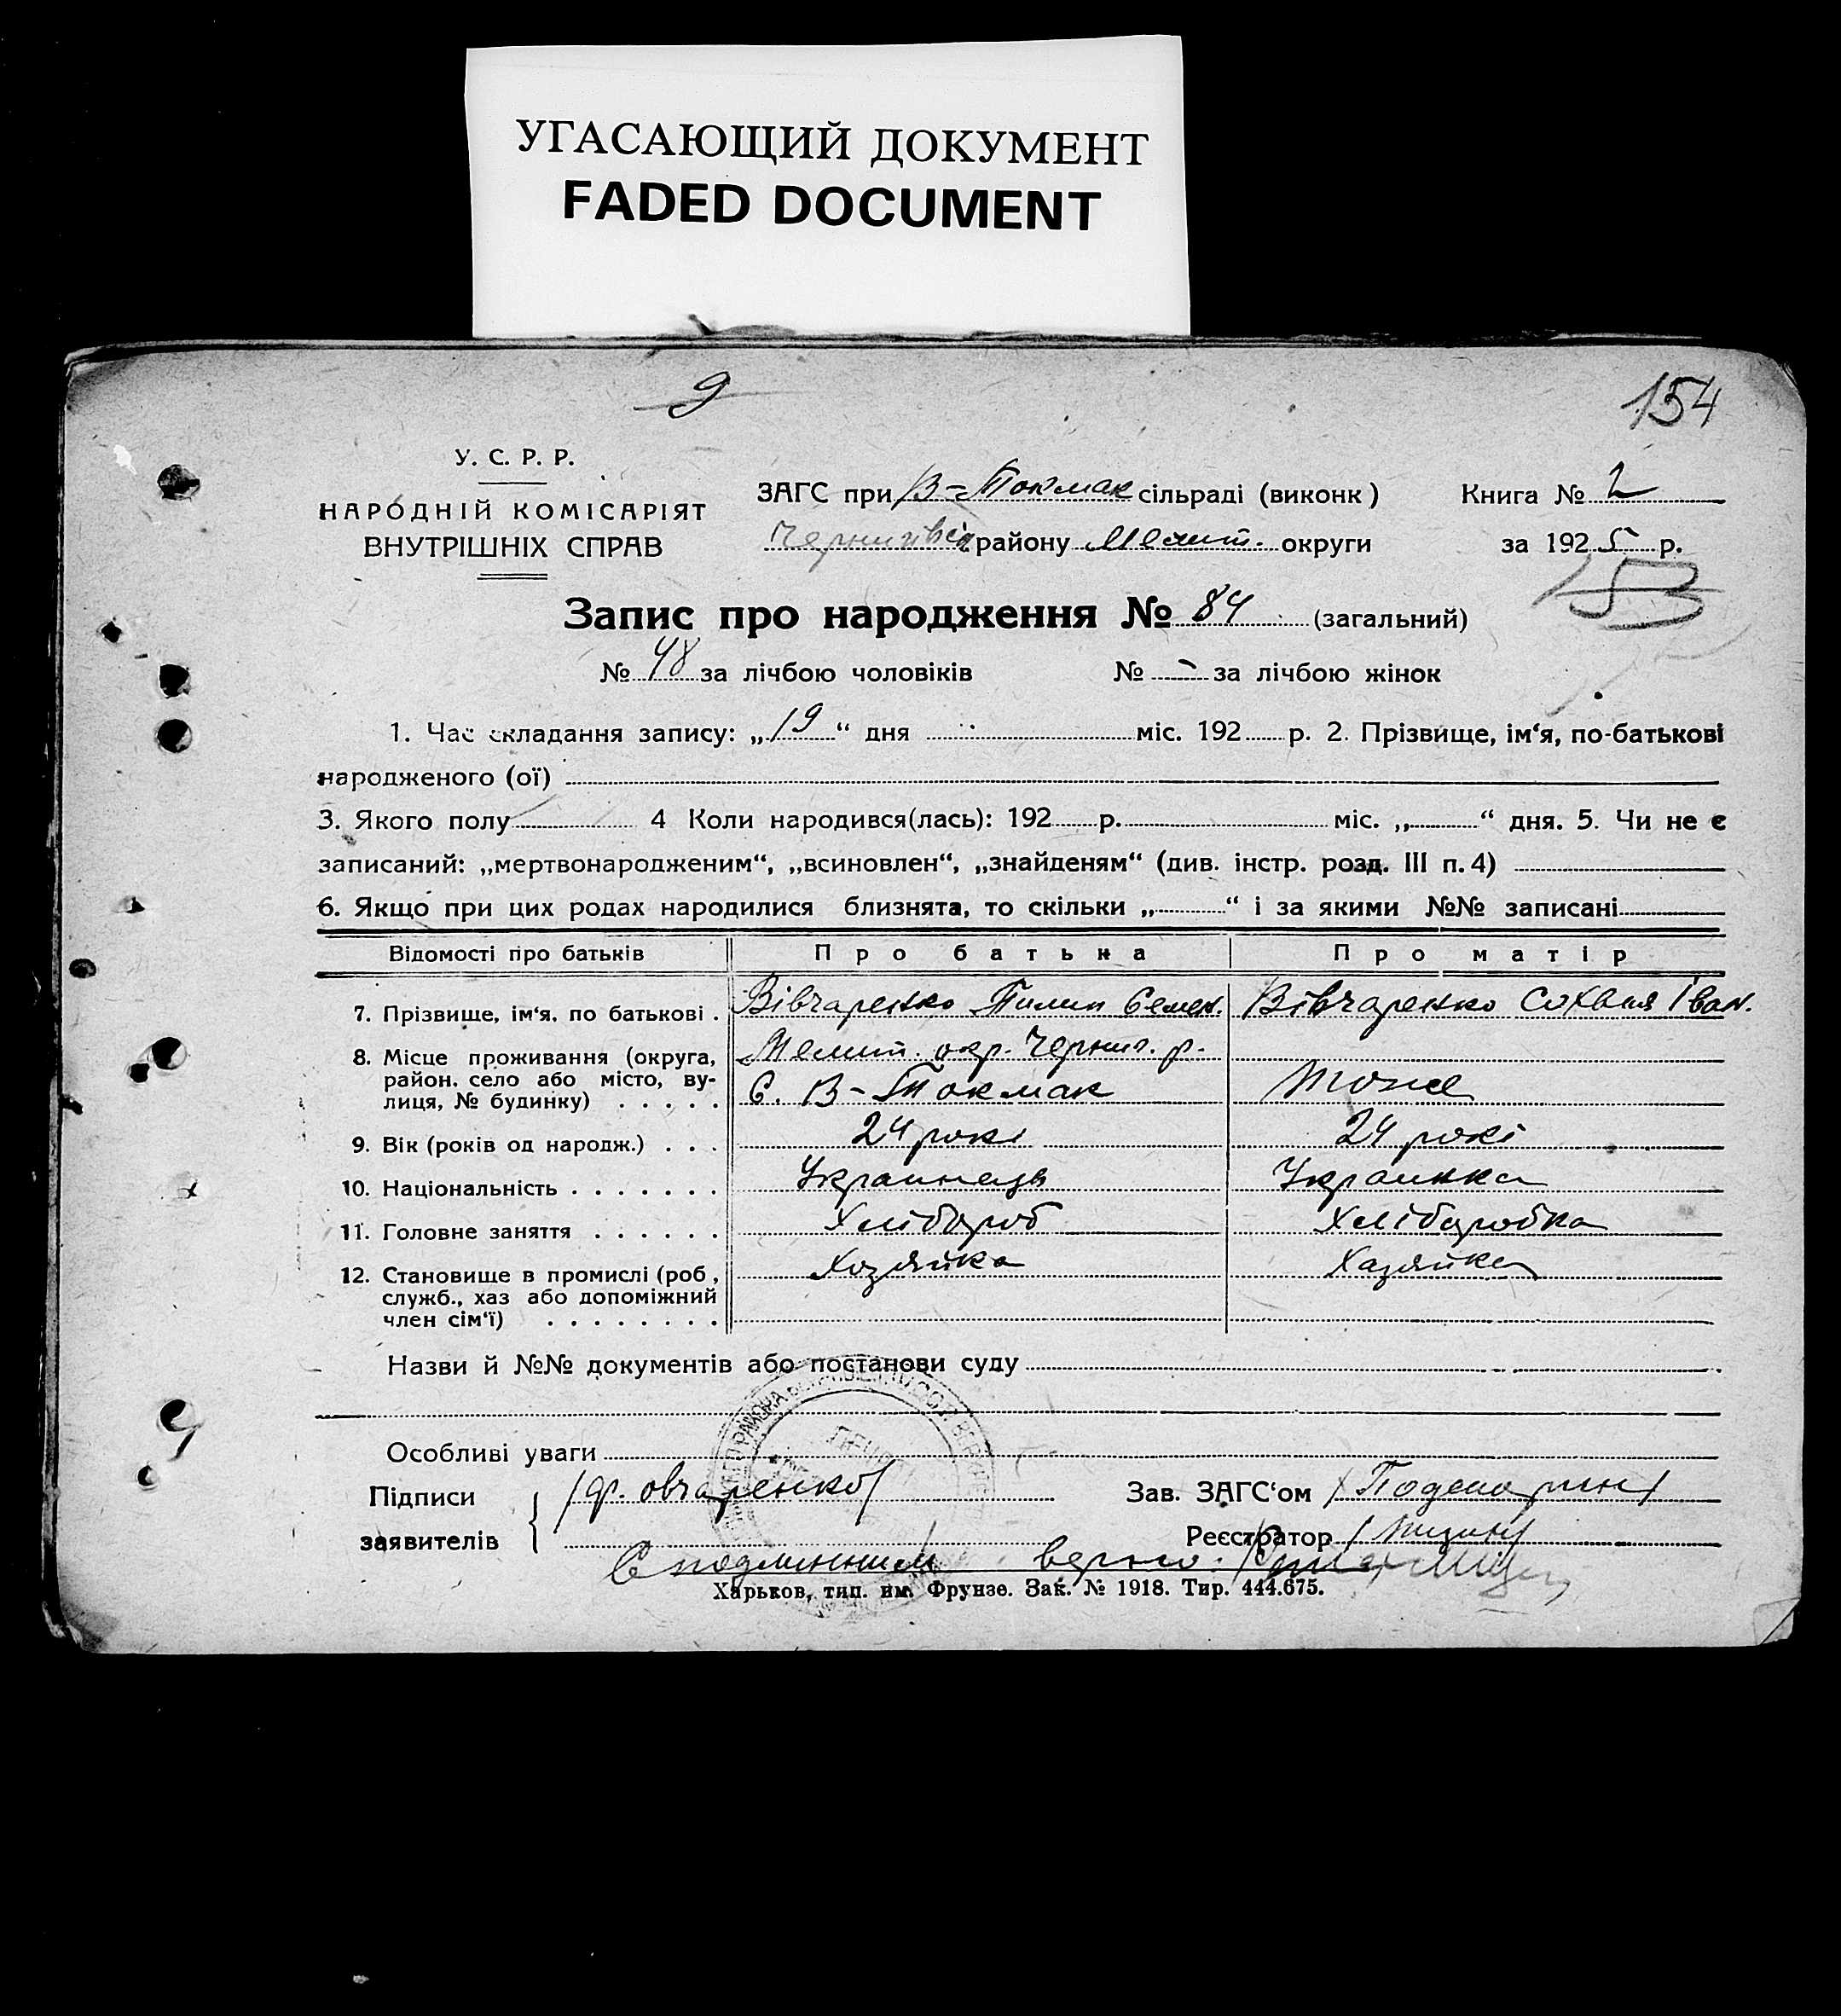 УГАСАЮЩИЙ ДОКУМЕНТ
FADED DOCUMENT
9
154
У. С. Р. Р.
НАРОДНІЙ КОМІСАРІЯТ
ВНУТРІШНІХ СПРАВ
ЗАГС при В-Токмак сільраді (виконк) Книга № 2
району Мелит. округи за 1925 р.
153
Запис про народження № 84 (загальний)
№ 48 за лічбою чоловіків № - за лічбою жінок
1. Час складання запису: „19“ дня міс. 192 р. 2. Прізвище, ім‘я, по-батькові
народженого (ої)
3. Якого полу 4 Коли народився(лась): 192 р. міс. „ “ дня. 5. Чи не є
записаний: „мертвонародженим“, „всиновлен“, „знайденям“ (див. інстр. розд. III п. 4)
6. Якщо при цих родах народилися близнята, то скільки „ “ і за якими №№ записані
Відомості про батьків Про батька Про матір
7. Прізвище, ім‘я, по батькові . Вівчаренко Пилип Семен. Вівчаренко Сохвия Іван.
8. Місце проживання (округа, Мелит. окр. Черниг. р.
район. село або місто, ву-
лиця, № будинку) . . . . . С. В-Токмак Тоже
9. Вік (років од народж.) . . . 24 рокі 24 рокі
10. Національність . . . . . . . Украинець Украинка
11. Головне заняття . . . . . . Хлібороб Хліборобка
12. Становище в промислі (роб, Хозяйка Хазяйка
служб., хаз або допоміжний
член сім‘ї) . . . . . . . .
Назви й №№ документів або постанови суду
Особливі уваги
Підписи /Ф. Овчаренко/ Зав. ЗАГС‘ом
заявителів Реєстратор
С подлинним верно.
Харьков, тип. им. Фрунзе. Зак. № 1918. Тир. 444.675.